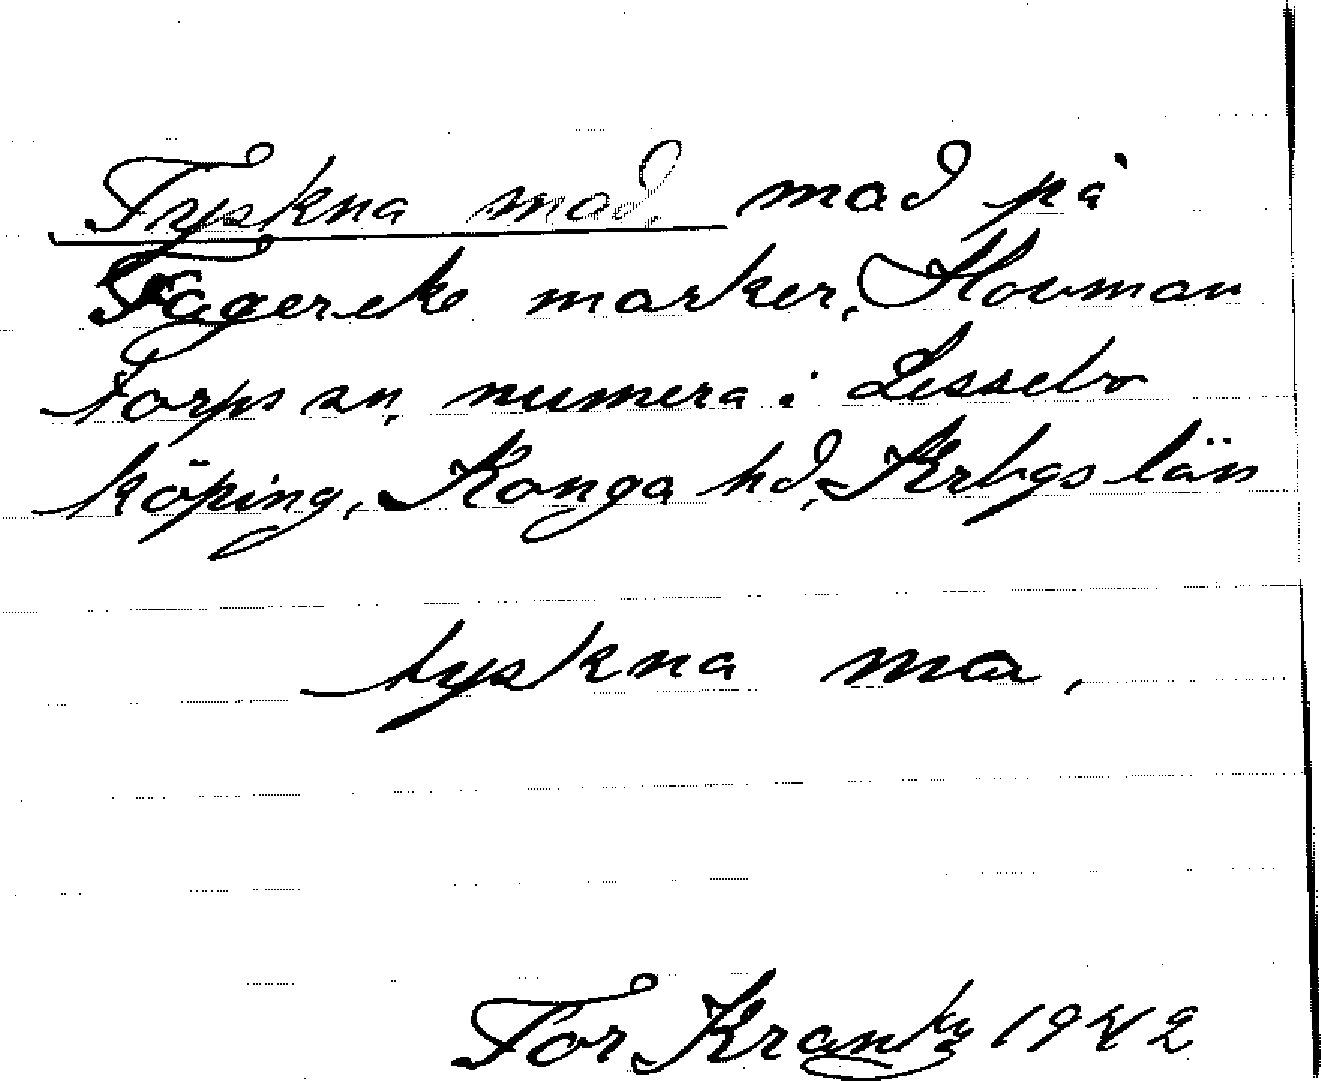 Tyskna mad, mad på
Fagereke marker, Hovman
torps sn, numera i Lessebo
köping, Konga hd, Krbgs län
tyskna ma,
Tor Krantz 1942